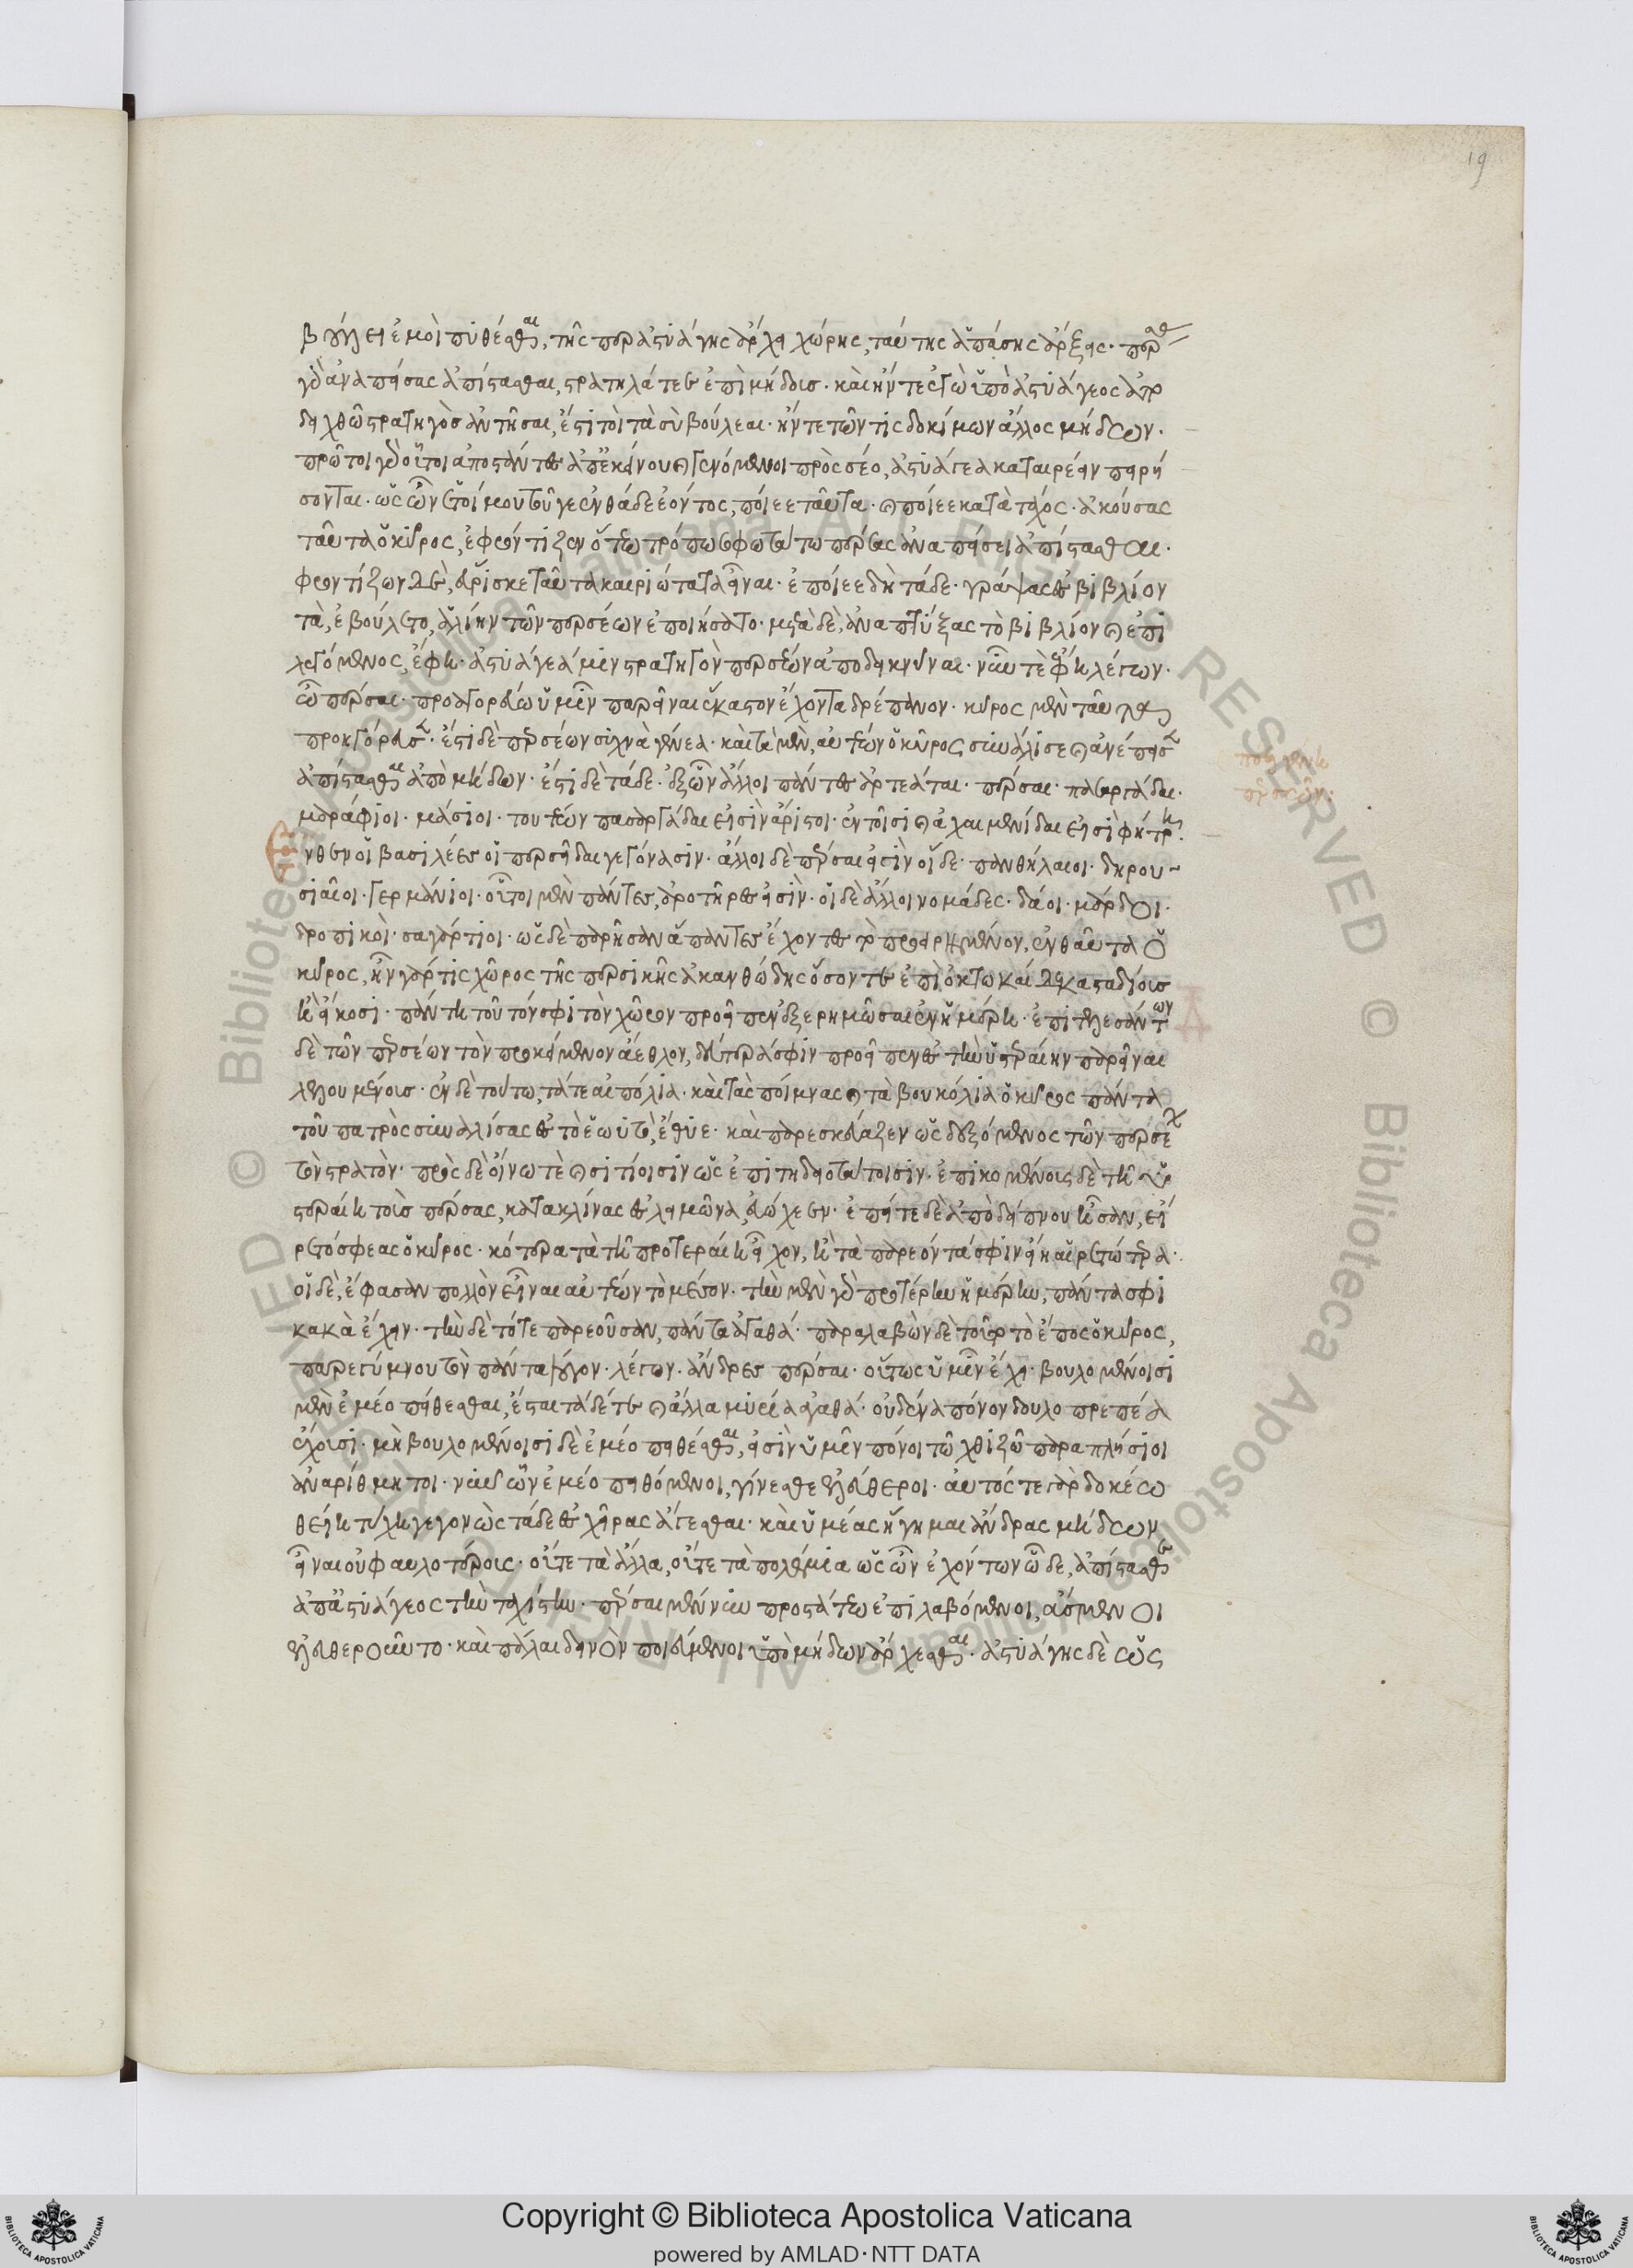 19
βούλει ἐμοὶ πείθεσθαι, τῆς περ ἀστυάγης ἄρχει χώρης, ταύτης ἁπάσης ἄρξεις· πέρσας
γὰρ ἀναπείσας ἀπίστασθαι, στρατηλάτεε ἐπὶ μήδοις· καὶ ἤν τε ἐγὼ ὑπὸ ἀστυάγεος ἀπο
δειχθῶ στρατηγὸς ἀντῆσαι, ἔστι τοι τὰ σὺ βούλεαι· ἤν τε τῶν τις δοκίμων ἄλλος μήδων·
πρῶτοι γὰρ οὗτοι ἀποστάντες ἀπ' ἐκείνου καὶ γενόμενοι πρὸς σέο, ἀστυάγεα καταιρέειν πειρή
σονται· ὡς ὦν ἑτοίμου τοῦ γε ἐνθάδε ἐόντος, ποίεε ταῦτα· καὶ ποίεε κατὰ τάχος· ἀκούσας
ταῦτα ὁ κῦρος, ἐφρόντιζεν ὅτεω τρόπω σοφωτάτω πέρσας ἀναπείσει ἀπίστασθαι·
φροντίζων δὲ, εὑρίσκεται ταῦτα καιριώτατα εἶναι· ἐποίεε δὴ τάδε· γράψας ἐς βιβλίον
τὰ, ἐβούλετο, ἁλίην τῶν περσέων ἐποιήσατο· μετὰ δὲ, ἀναπτύξας τὸ βιβλίον καὶ ἐπι
λεγόμενος, ἔφη· ἀστυάγεά μιν στρατηγὸν περσέων ἀποδεικνύναι· νῦν τὲ ἔφη λέγων·
ὦ πέρσαι· προαγορεύω ὑμῖν παρεῖναι ἕκαστον ἔχοντα δρέπανον· κῦρος μὲν ταῦτα
προηγόρευσε· ἔστι δὲ περσέων συχνὰ γένεα· καὶ τὰ μὲν, αὐτέων ὁ κῦρος συνάλισε καὶ ἀνέπεισε
ἀπίστασθαι ἀπὸ μήδων· ἔστι δὲ τάδε· ἐξ ὧν ἄλλοι πάντες ἀρτέαται· πέρσαι· πασαργάδαι·
μαράφιοι· μάσιοι· τουτέων πασαργάδαι εἰσὶν ἄριστοι· ἐν τοῖσι καὶ ἀχαιμενίδαι εἰσὶ φρήτρη
πόσα γένη
περσῶν·
ἔνθεν οἱ βασιλέες οἱ περσεῖδαι γεγόνασιν· ἄλλοι δὲ πέρσαι εἰσὶν οἵδε· πανθηλαῖοι· δηρου-
σιαῖοι· γερμάνιοι· οὗτοι μὲν πάντες, ἀροτῆρες εἰσίν· οἱ δὲ ἄλλοι νομάδες· δάοι· μάρδοι·
δροπικοὶ· σαγάρτιοι· ὡς δὲ παρῆσαν ἅπαντες ἔχοντες τὸ προειρημένον, ἐνθαῦτα ὁ
κῦρος, ἦν γάρ τις χῶρος τῆς περσικῆς ἀκανθώδης ὅσον τε ἐπὶ ὀκτωκαίδεκα σταδίους
ἢ εἴκοσι· πάντη τοῦτόν σφι τὸν χῶρον προεῖπεν ἐξερημῶσαι ἐν ἡμέρη· ἐπιτελεσάντων
δὲ τῶν περσέων τὸν προκείμενον ἄεθλον, δεύτερά σφιν προεῖπεν ἐς τὴν ὑστεραίην παρεῖναι
λελουμένοις· ἐν δὲ τούτω, τά τε αἰπόλια· καὶ τὰς ποίμνας καὶ τὰ βουκόλια ὁ κῦρος πάντα
τοῦ πατρὸς συναλίσας ἐς τὸ ἑωυτὸ, ἔθυε· καὶ παρεσκεύαζεν ὡς δεξόμενος τῶν περσέων
τὸν στρατὸν· πρὸς δὲ οἴνω τὲ καὶ σιτίοισιν ὡς ἐπιτηδεοτάτοισιν· ἀπικομένοις δὲ τῆ ὑ
στεραίη τοὺς πέρσας, κατακλίνας ἐς λειμῶνα, εὐώχεεν· ἐπείτε δὲ ἀπὸ δείπνου ἦσαν, εἴ
ρετό σφεας ὁ κῦρος· κότερα τὰ τῆ προτεραίη εἶχον, ἢ τὰ παρεόντα σφιν εἴη αἱρετώτερα·
οἱ δὲ, ἔφασαν πολλὸν εἶναι αὐτέων τὸ μέσον· τὴν μὲν γὰρ προτέρην ἡμέρην, πάντα σφι
κακὰ ἔχειν· τὴν δὲ τότε παρεοῦσαν, πάντα ἀγαθά· παραλαβὼν δὲ τοῦτο τὸ ἔπος ὁ κῦρος,
παρεγύμνου τὸν πάντα λόγον· λέγων· ἄνδρες πέρσαι· οὕτως ὑμῖν ἔχει· βουλομένοισι
μὲν ἐμέο πείθεσθαι, ἔσται τάδέ τε καὶ ἄλλα μυρία ἀγαθά· οὐδένα πόνον δουλοπρεπέα
ἔχουσι· μὴ βουλομένοισι δὲ ἐμέο πείθεσθαι, εἰσὶν ὑμῖν πόνοι τῶ χθιζῶ παραπλήσιοι
ἀναρίθμητοι· νῦν ὦν ἐμέο πειθόμενοι, γίνεσθε ἐλεύθεροι· αὐτός τε γὰρ δοκέω
θείη τύχη γεγονὼς τάδε ἐς χεῖρας ἄγεσθαι· καὶ ὑμέας ἥγημαι ἄνδρας μήδων
εἶναι οὐ φαυλοτέρους· οὔτε τὰ ἄλλα, οὔτε τὰ πολέμια ὡς ὦν ἐχόντων ὧδε, ἀπίστασθε
ἀπ' ἀστυάγεος τὴν ταχίστην· πέρσαι μέν νυν προστάτεω ἐπιλαβόμενοι, ἄσμενοι
ἐλευθεροῦντο· καὶ πάλαι δεινὸν ποιεύμενοι ὑπὸ μήδων ἄρχεσθαι· ἀστυάγης δὲ ὡς
Copyright © Biblioteca Apostolica Vaticana
powered by AMLAD·NTT DATA